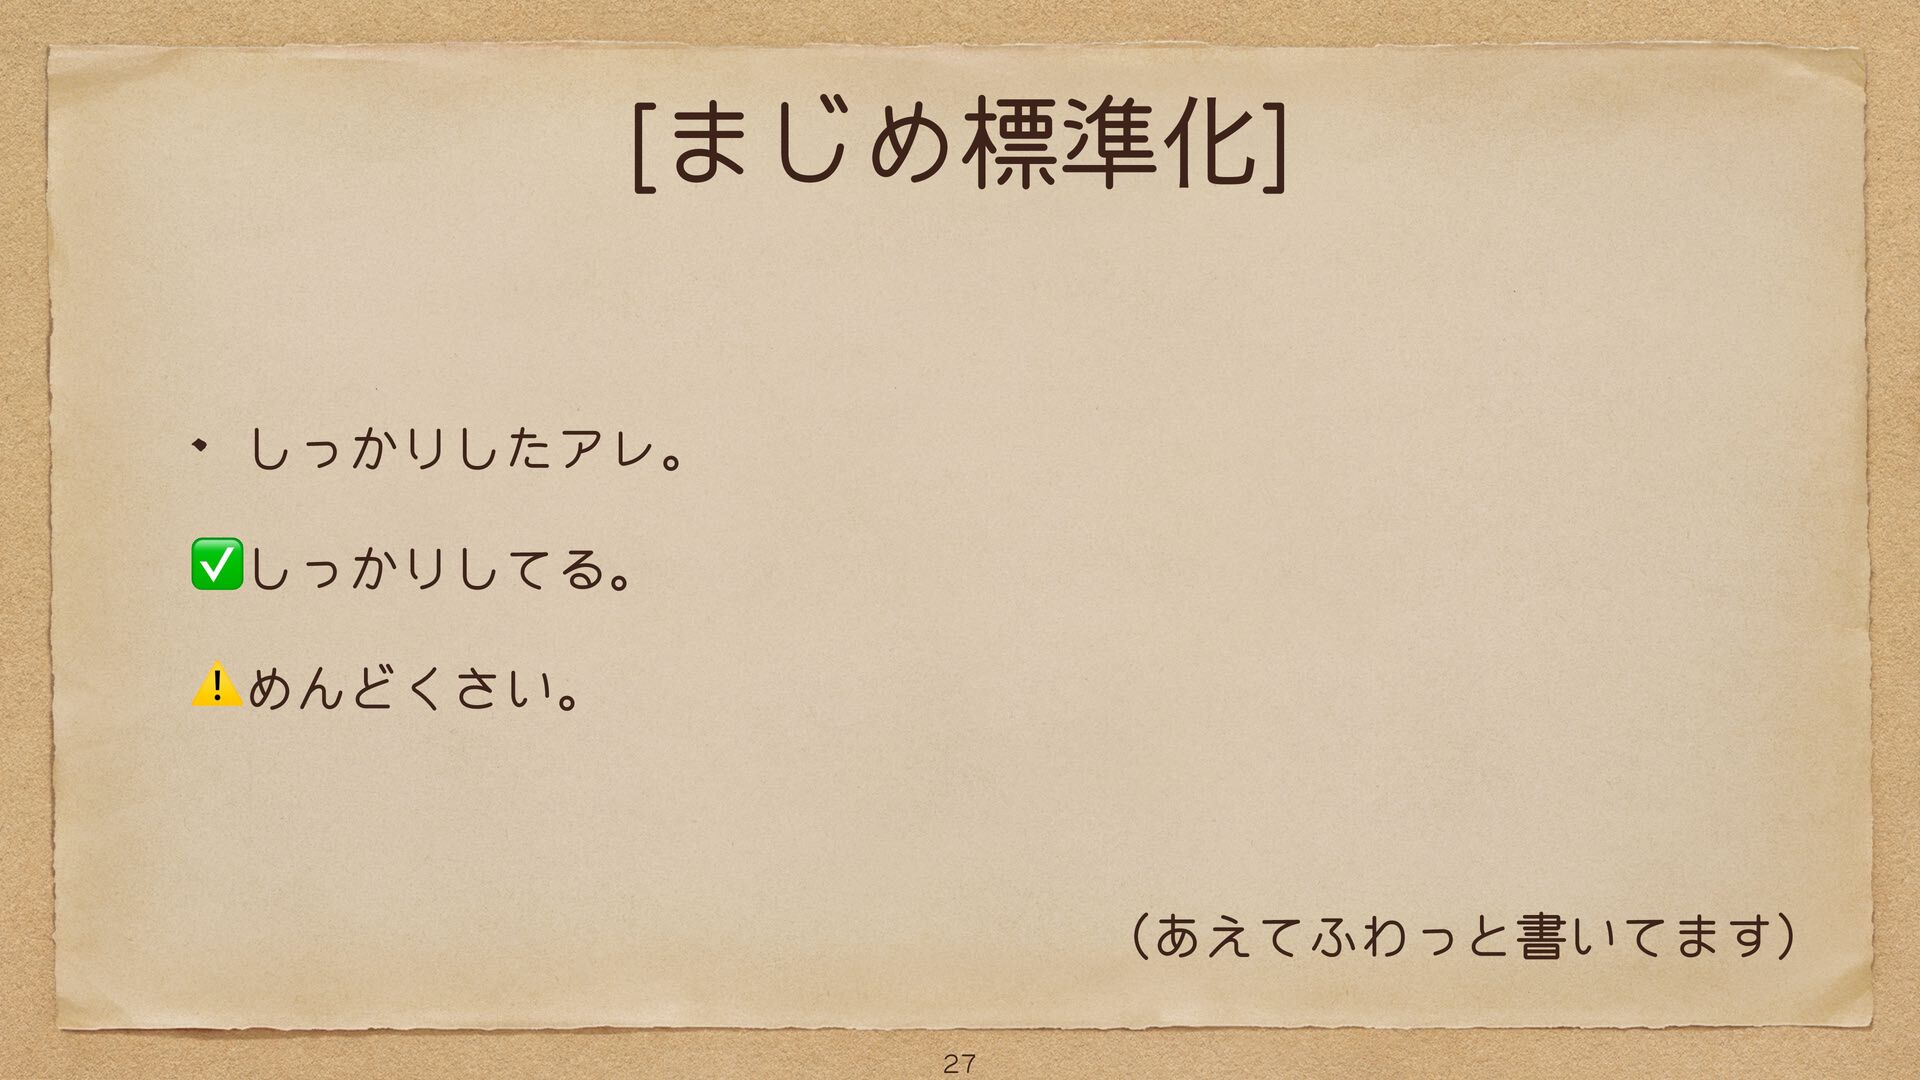 [まじめ標準化]
・ しっかりしたアレ。
✅しっかりしてる。
⚠️めんどくさい。
（あえてふわっと書いてます）
27